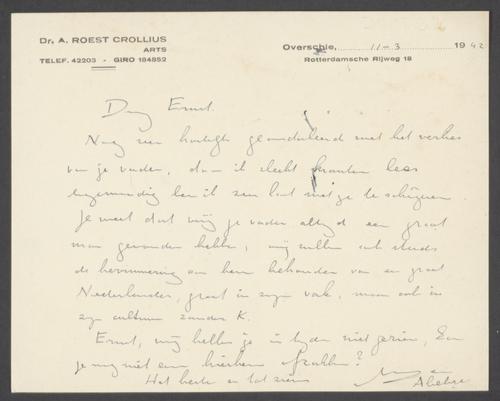 Dr. A. ROEST CROLLIUS
ARTS
TELEF. 42203 - GIRO 184852
Overschie, 11-3 1942
Rotterdamsche Rijweg 18
Dag Ernst.
Nog een hartelijk gecondoleerd met het verlies
van je vader, daar ik slecht kranten lees
ben ik zoo laat met je te schrijven.
Je weet dat wij je vader altijd een groot
man gevonden hebben, wij zullen ook steeds
de herinnering aan hem behouden van een groot
Nederlander, groot in zijn vak, maar ook in
zijn cultuur zonder K.
Ernst, wij hebben je in tijden niet gezien, kan
je nog niet eens hierheen ?
Het beste en tot ziens